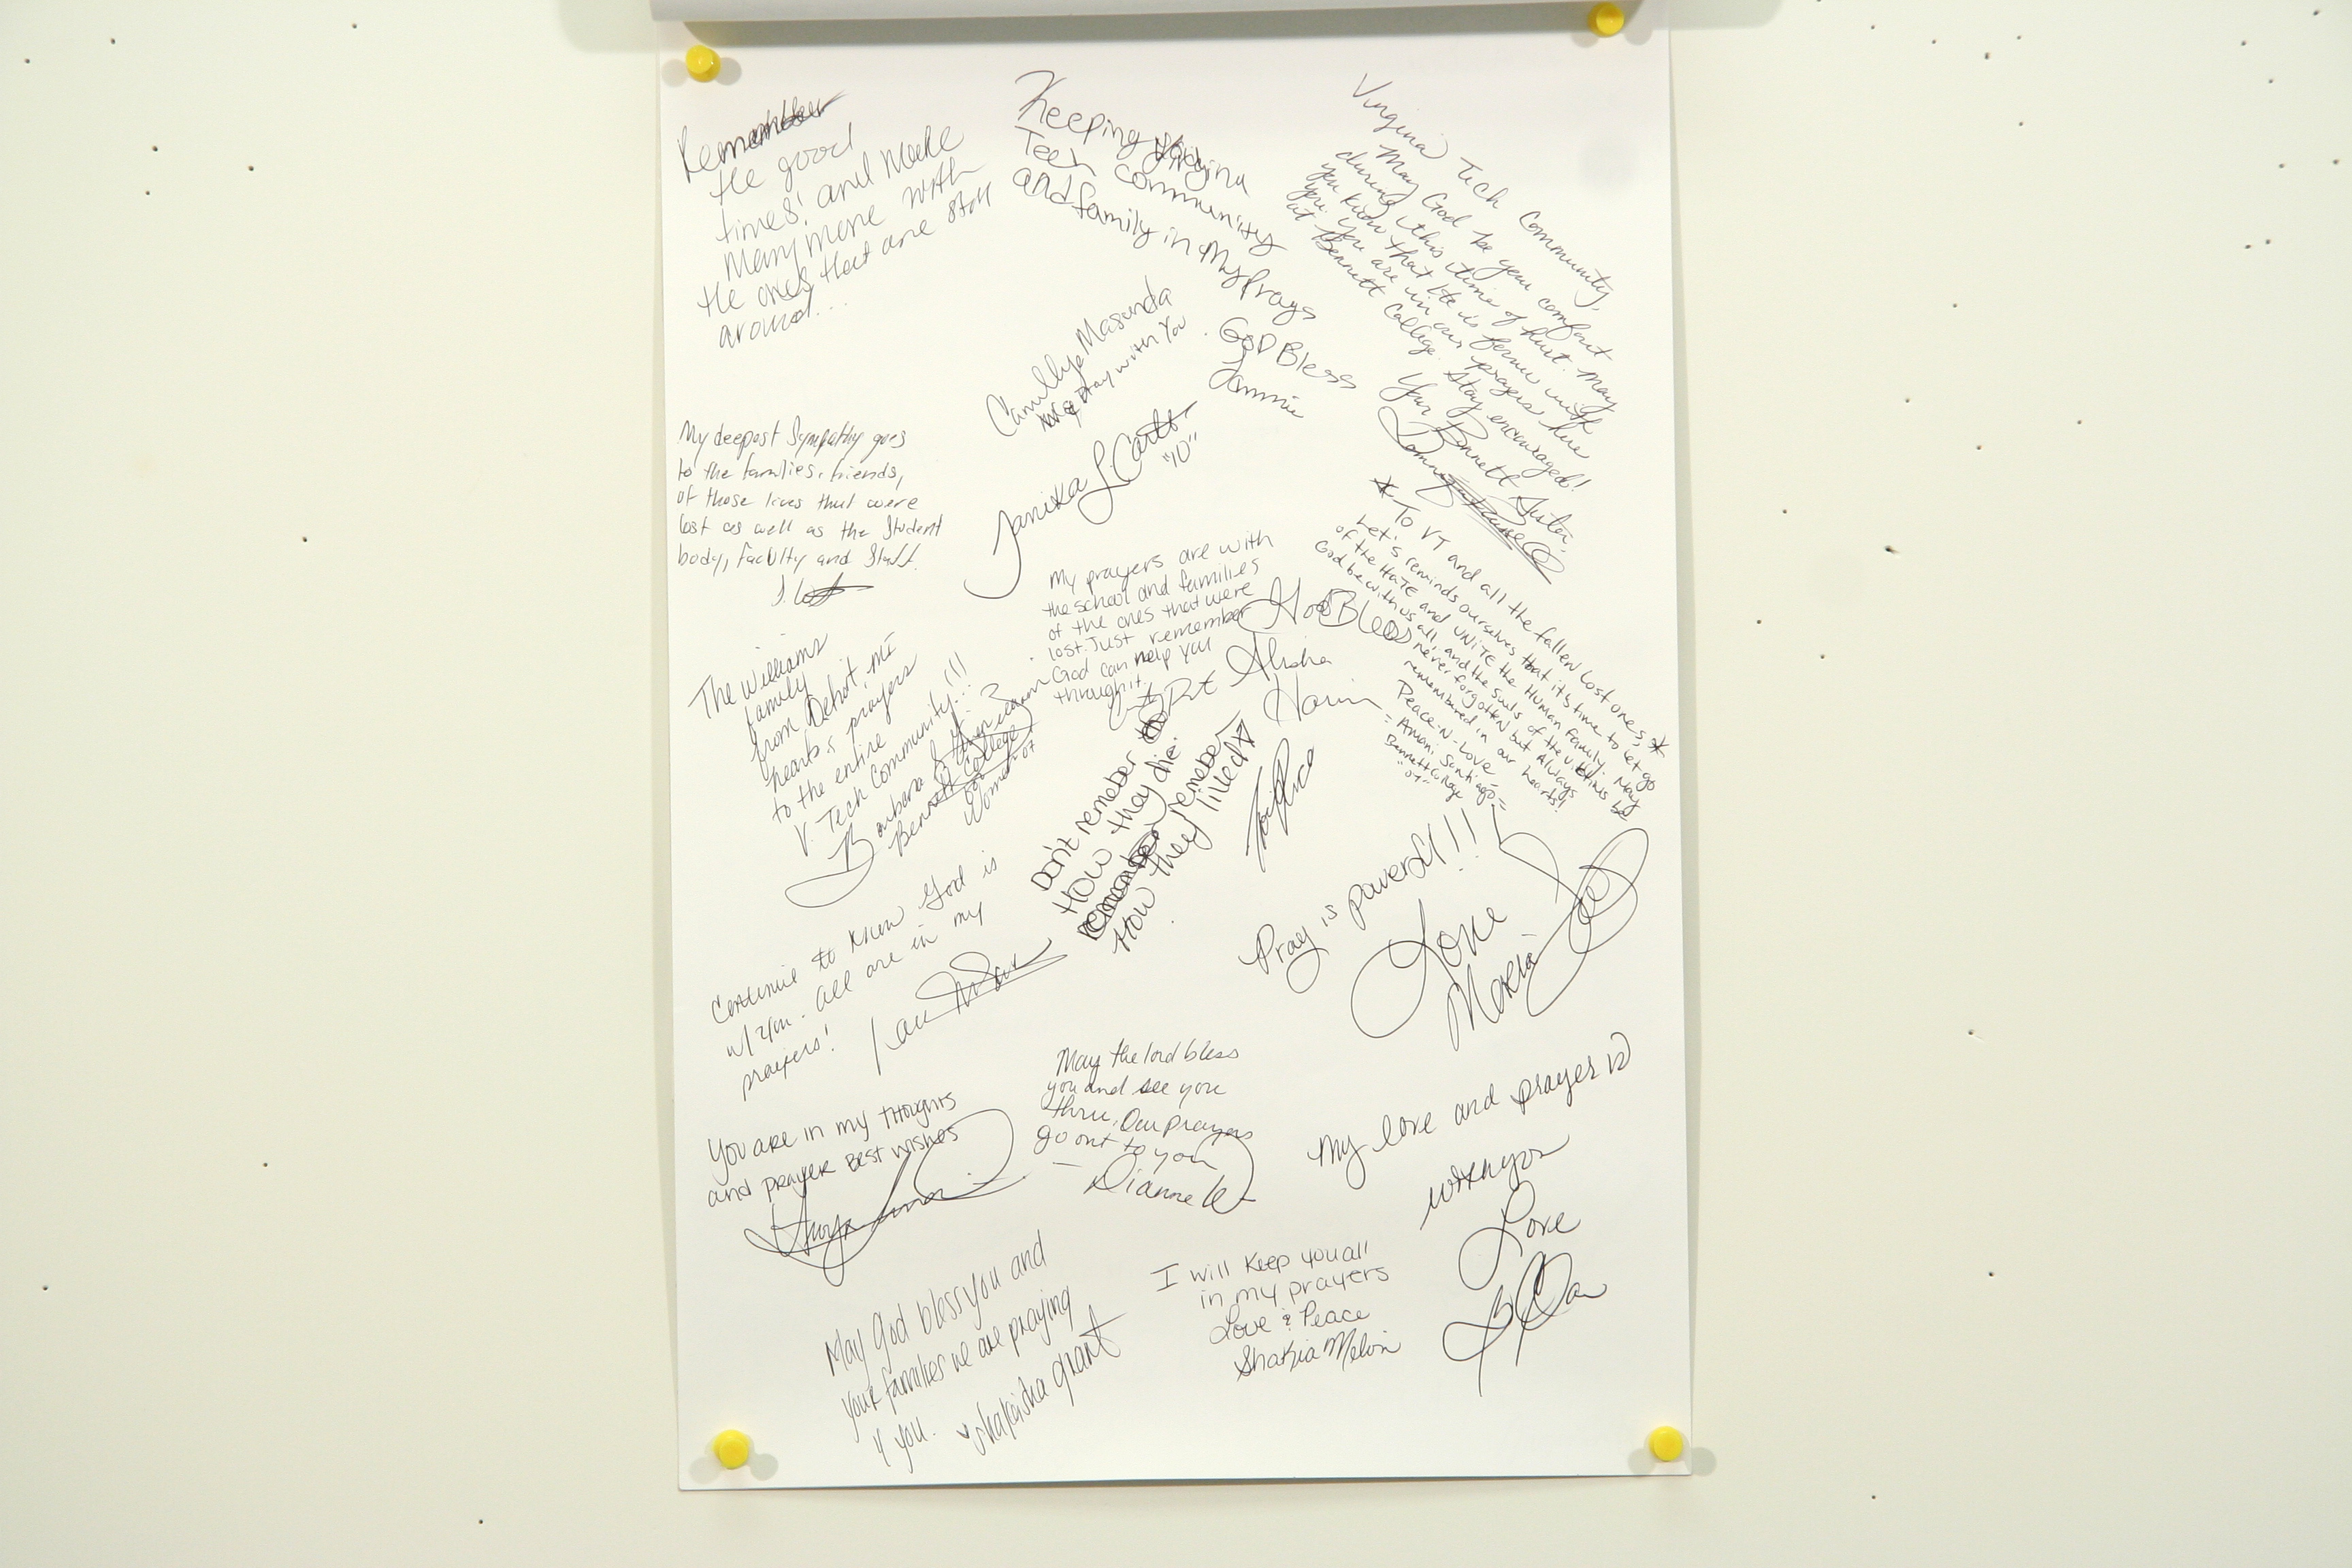 Remember
the good
times! and make
many more with
the ones that are still
around...
Keeping Virginia
Tech community
and family in my prays
God Bless
Jammie
Virginia Tech Community,
May God be your comfort
during this time of hurt. May
you know that He is ferm with
you. You are in our prayers here
at Bennett College. Stay encouraged!
Your Bennett Sister,
Camillye Masunda
Pray with You
Janika L. Carter
"10"
My deepest Sympathy goes
to the families, friends,
of those lives that were
lost as well as the Student
body, faculty and Staff.
* To VT and all the fallen lost ones, *
Let's reminds ourselves that it's time to let go
of the HaTE and UNiTE the Human Family. May
God be with us all, and the souls of the victims be
never forgotten but Always
remembered in our hearts!
Peace-N-Love
= Amani Santiago =
Bennett College
"07"
My prayers are with
the school and families
of the ones that were
lost. Just remember
God can help you
through it.
God Bless
Alisha
The Williams
family
from Detroit, MI
hearts & prayers
to the entire
V. Tech Community!!!
Barbara
Bennett College
Woman '07
Don't remeber
How they die.
remeber
How they lived
Pray is powerful!!!
Love
Maria
Continue to know God is
w/ you. All are in my
prayers!
You are in my thoughts
and prayer Best wishes
May the lord bless
you and see you
thru. Our prayers
go out to you
Dianne
My love and prayer is
with you
Love
May God bless you and
your families we are praying
4 you.
Shakeisha Grant
I will keep you all
in my prayers
Love & Peace
Shakia Melvin